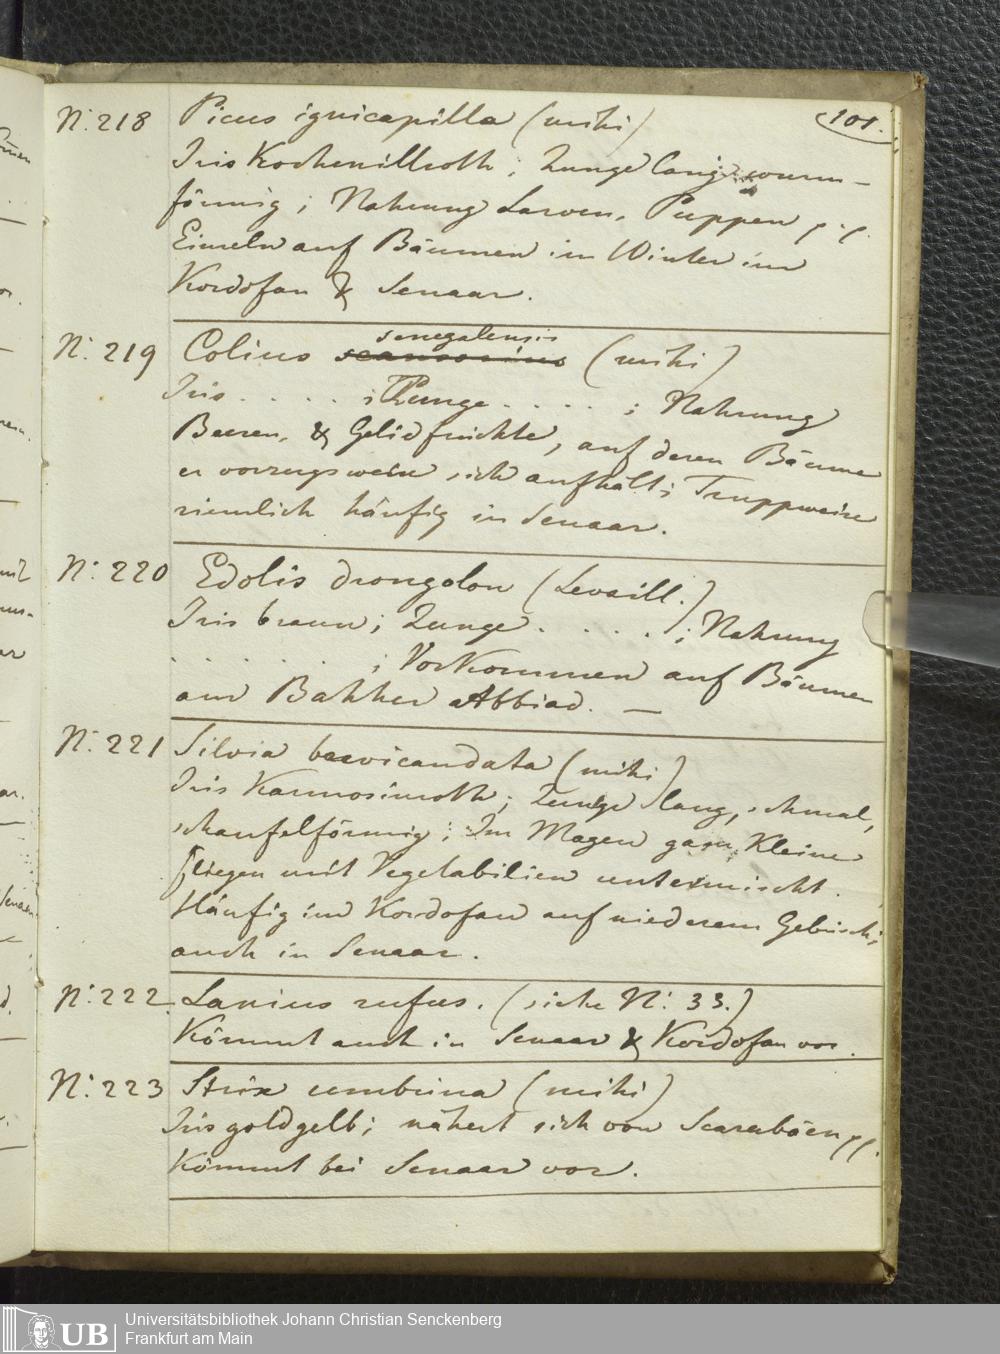 101.
N: 218 Picus ignicapilla (mihi)
Iris Kochenillroth; Zunge lang, wurm-
förmig; Nahrung Larven, Puppen p. p.
Einzeln auf Bäumen im Winter im
Kordofan & Senaar.
N: 219 Colius scansorius senegalensis (mihi)
Iris . . . . ; Zunge . . . . ; Nahrung
Beeren, & Gelidfrüchte, auf deren Bäume
er vorzugsweise sich aufhält; Truppweise
ziemlich häufig in Senaar.
N: 220 Edolis drongolon (Levaill.)
Iris braun; Zunge . . . . ; Nahrung
. . . . . . ; Vorkommen auf Bäumen
am Bahher Abbiad. —
N: 221 Silvia brevicaudata (mihi)
Iris Karmosinroth; Zunge lang, schmal,
schaufelförmig; Im Magen ganz Kleine
fliegen mit Vegetabilien untermischt.
Häufig im Kordofan auf niederem Gebüsch;
auch in Senaar.
N: 222. Lanius rufus. (siehe N: 33.)
Kömmt auch in Senaar & Kordofan vor.
N: 223 Strix umbrina (mihi)
Iris goldgelb; nährt sich von Scarabäen pp.
Kömmt bei Senaar vor.
UB
Universitätsbibliothek Johann Christian Senckenberg
Frankfurt am Main